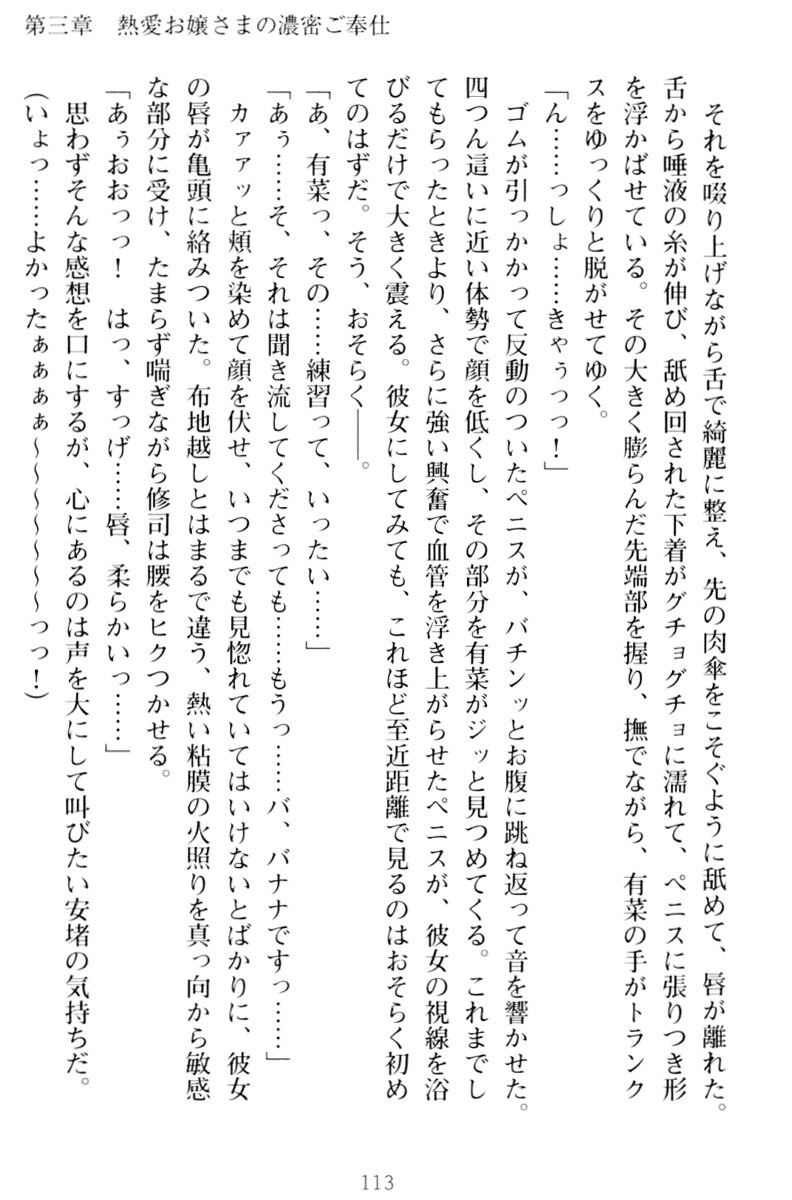 第三章　熱愛お嬢さまの濃密ご奉仕
　それを啜り上げながら舌で綺麗に整え、先の肉傘をこそぐように舐めて、唇が離れた。
舌から唾液の糸が伸び、舐め回された下着がグチョグチョに濡れて、ペニスに張りつき形
を浮かばせている。その大きく膨らんだ先端部を握り、撫でながら、有菜の手がトランク
スをゆっくりと脱がせてゆく。
「ん……っしょ……きゃぅっっ！」
　ゴムが引っかかって反動のついたペニスが、バチンッとお腹に跳ね返って音を響かせた。
四つん這いに近い体勢で顔を低くし、その部分を有菜がジッと見つめてくる。これまでし
てもらったときより、さらに強い興奮で血管を浮き上がらせたペニスが、彼女の視線を浴
びるだけで大きく震える。彼女にしてみても、これほど至近距離で見るのはおそらく初め
てのはずだ。そう、おそらく――。
「あ、有菜っ、その……練習って、いったい……」
「あぅ……そ、それは聞き流してくださっても……もうっ……バ、バナナですっ……」
　カァァッと頬を染めて顔を伏せ、いつまでも見惚れていてはいけないとばかりに、彼女
の唇が亀頭に絡みついた。布地越しとはまるで違う、熱い粘膜の火照りを真っ向から敏感
な部分に受け、たまらず喘ぎながら修司は腰をヒクつかせる。
「あぅおおっっ！　はっ、すっげ……唇、柔らかいっ……」
　思わずそんな感想を口にするが、心にあるのは声を大にして叫びたい安堵の気持ちだ。
（いょっ……よかったぁぁぁぁ～～～～～～～っっ！）
113